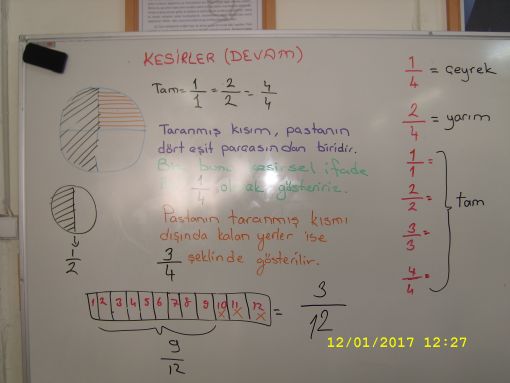 KESİRLER (DEVAM)
Tam = 1/1 = 2/2 = 4/4
Taranmış kısım, pastanın
dört eşit parçasından biridir.
Biz bunu kesirsel ifade
1/4 gösteririz.
Pastanın taranmış kısmı
dışında kalan yerler ise
3/4 şeklinde gösterilir.
1/2
1 2 3 4 5 6 7 8 9 10 11 12 = 3/12
x x x
9/12
1/4 = çeyrek
2/4 = yarım
1/1 =
2/2 =
3/3 =
4/4 =
tam
12/01/2017 12:27